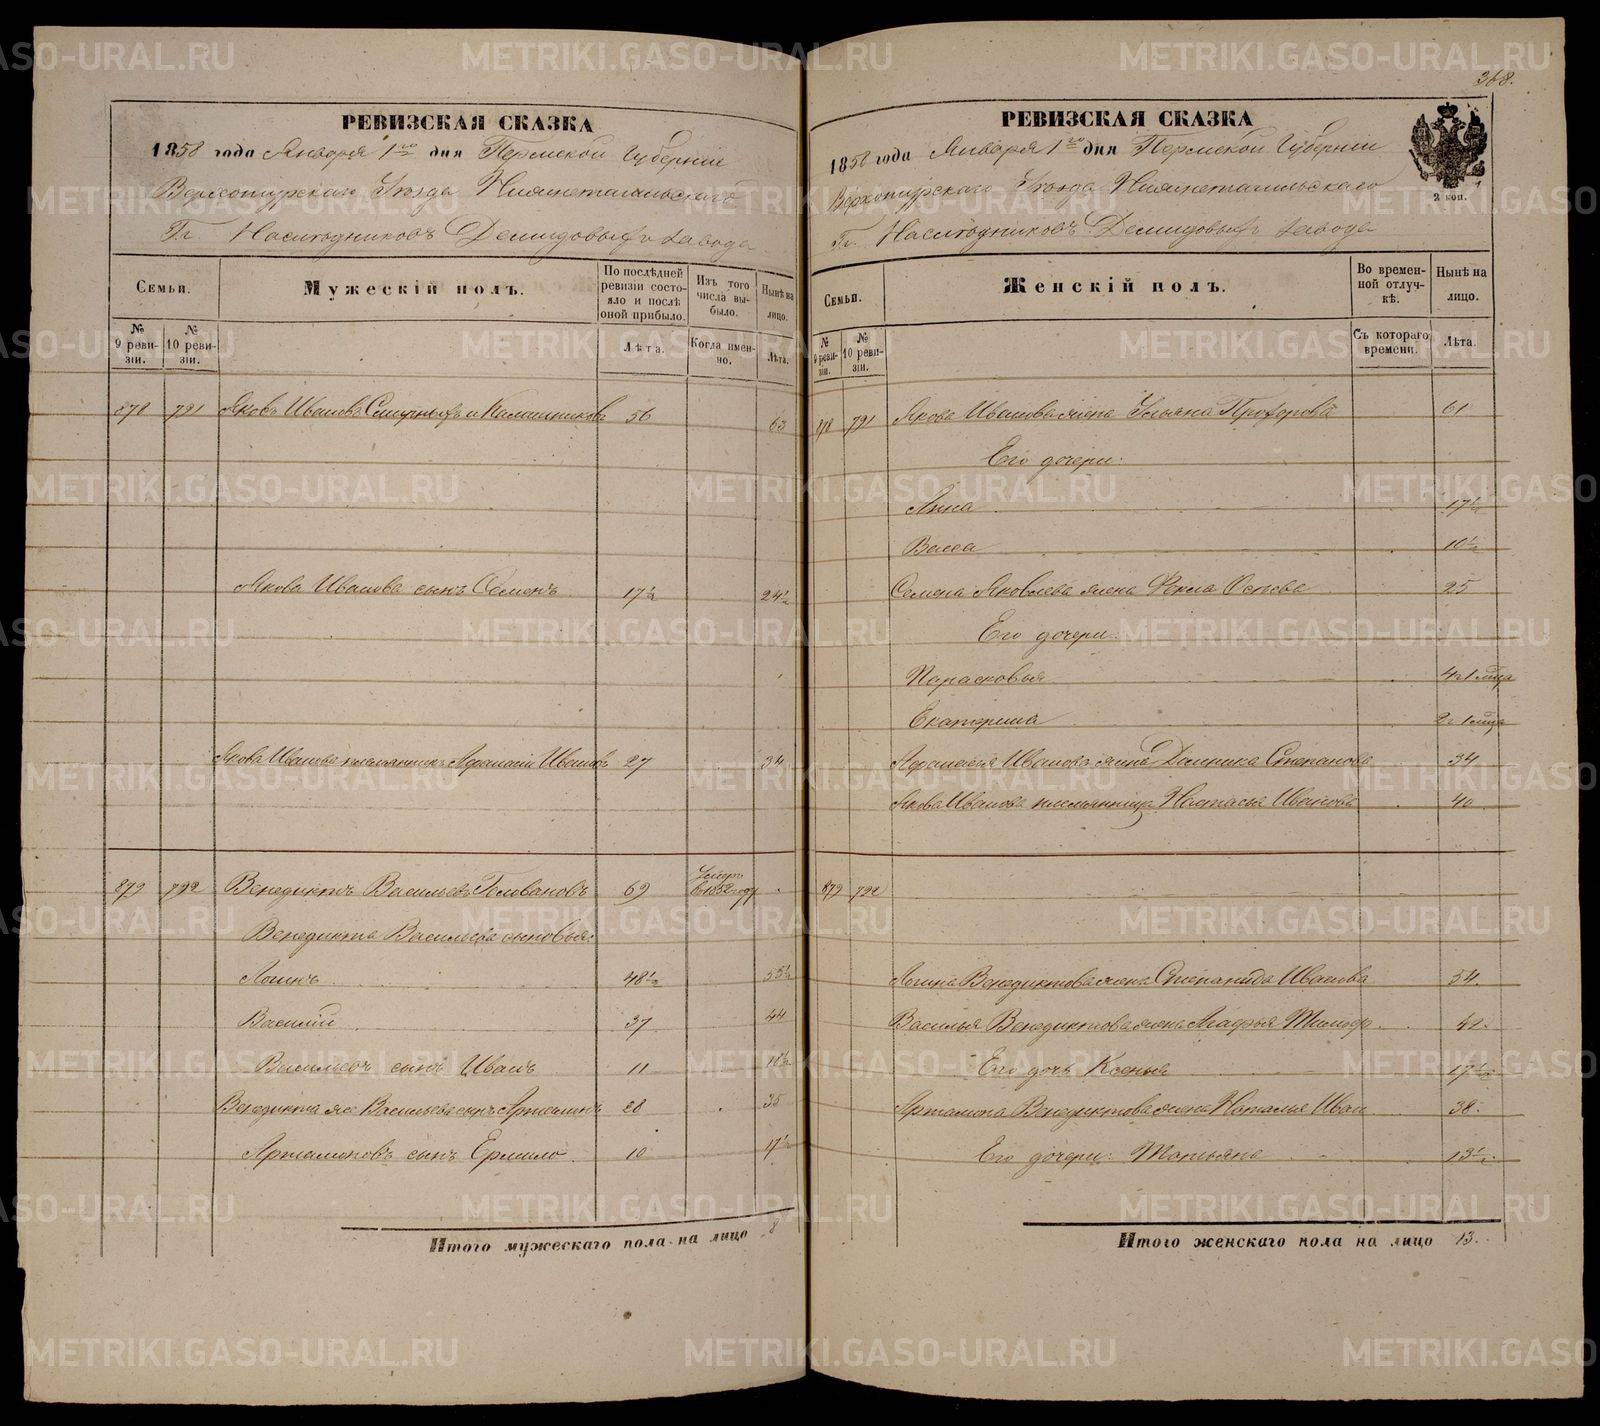 РЕВИЗСКАЯ СКАЗКА
1858 года Января 1го дня Пермской Губерніи
Верхотурскаго Уѣзда Нижнетагильскаго
Гг. Наслѣдниковъ Демидовыхъ завода
Семьи.
Мужескій полъ.
По послѣдней ревизіи состояло и послѣ оной прибыло.
Изъ того числа выбыло.
Нынѣ на лицо.
№ 9 ревизіи.
№ 10 ревизіи.
Лѣта.
Когда именно.
Лѣта.
878 791 Яковъ Ивановъ Смирныхъ и Калашниковъ 56 63
Якова Иванова сынъ Семенъ 17½ 24½
Якова Иванова племянникъ Афанасій Ивановъ 27 34
879 792 Венедиктъ Васильевъ Головановъ 69 Умеръ въ 1852 году
Венедикта Васильева сыновья:
Логинъ 48½ 55½
Василій 37 44
Васильевъ сынъ Иванъ 11 18½
Венедикта же Васильева сынъ Артамонъ 28 35
Артамоновъ сынъ Ермило 10 17½
Итого мужескаго пола на лицо 8
368.
РЕВИЗСКАЯ СКАЗКА
1858 года Января 1го дня Пермской Губерніи
Верхотурскаго Уѣзда Нижнетагильскаго
Гг. Наслѣдниковъ Демидовыхъ завода
2 коп.
Семьи.
Женскій полъ.
Во временной отлучкѣ.
Нынѣ на лицо.
№ 9 ревизіи.
№ 10 ревизіи.
Съ котораго времени.
Лѣта.
878 791 Якова Иванова жена Ульяна Прохорова 61
Его дочери:
Анна 17½
Васса 10½
Семена Яковлева жена Фекла Осипова 25
Его дочери:
Парасковья 4 г 1 мѣца
Екатерина 2 г 1 мѣца
Афанасья Иванова жена Домника Степанова 34
Якова Иванова племянница Настасья Иванова 40
879 792
Логина Венедиктова жена Степанида Иванова 54.
Василья Венедиктова жена Агафья Тимоф. 42.
Его дочь Ксенья 17½
Артамона Венедиктова жена Наталья Иван. 38.
Его дочери: Татьяна 13½.
Итого женскаго пола на лицо 13.
METRIKI.GASO-URAL.RU